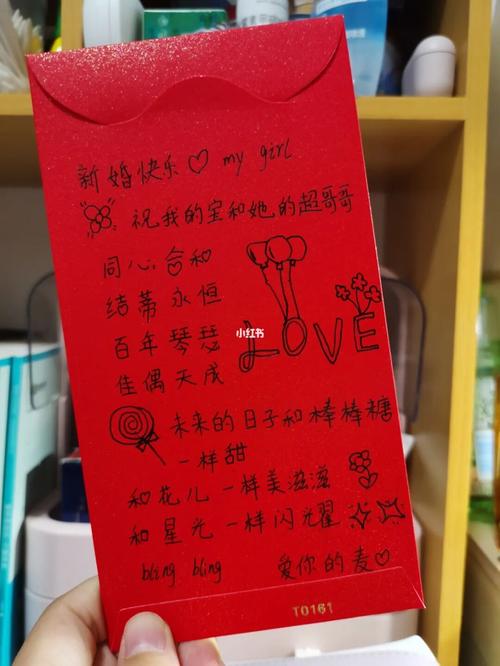 新婚快乐♡ my girl
祝我的宝和她的超哥哥
同心合和
结蒂永恒
百年琴瑟
佳偶天成
LOVE
小红书
未来的日子和棒棒糖
一样甜
和花儿一样美滋滋
和星光一样闪光耀
bling bling 爱你的麦♡
T0161